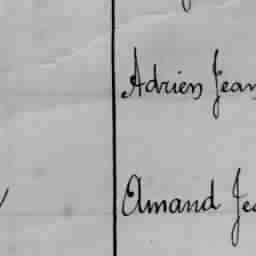 Adrien Jean
Amand Je